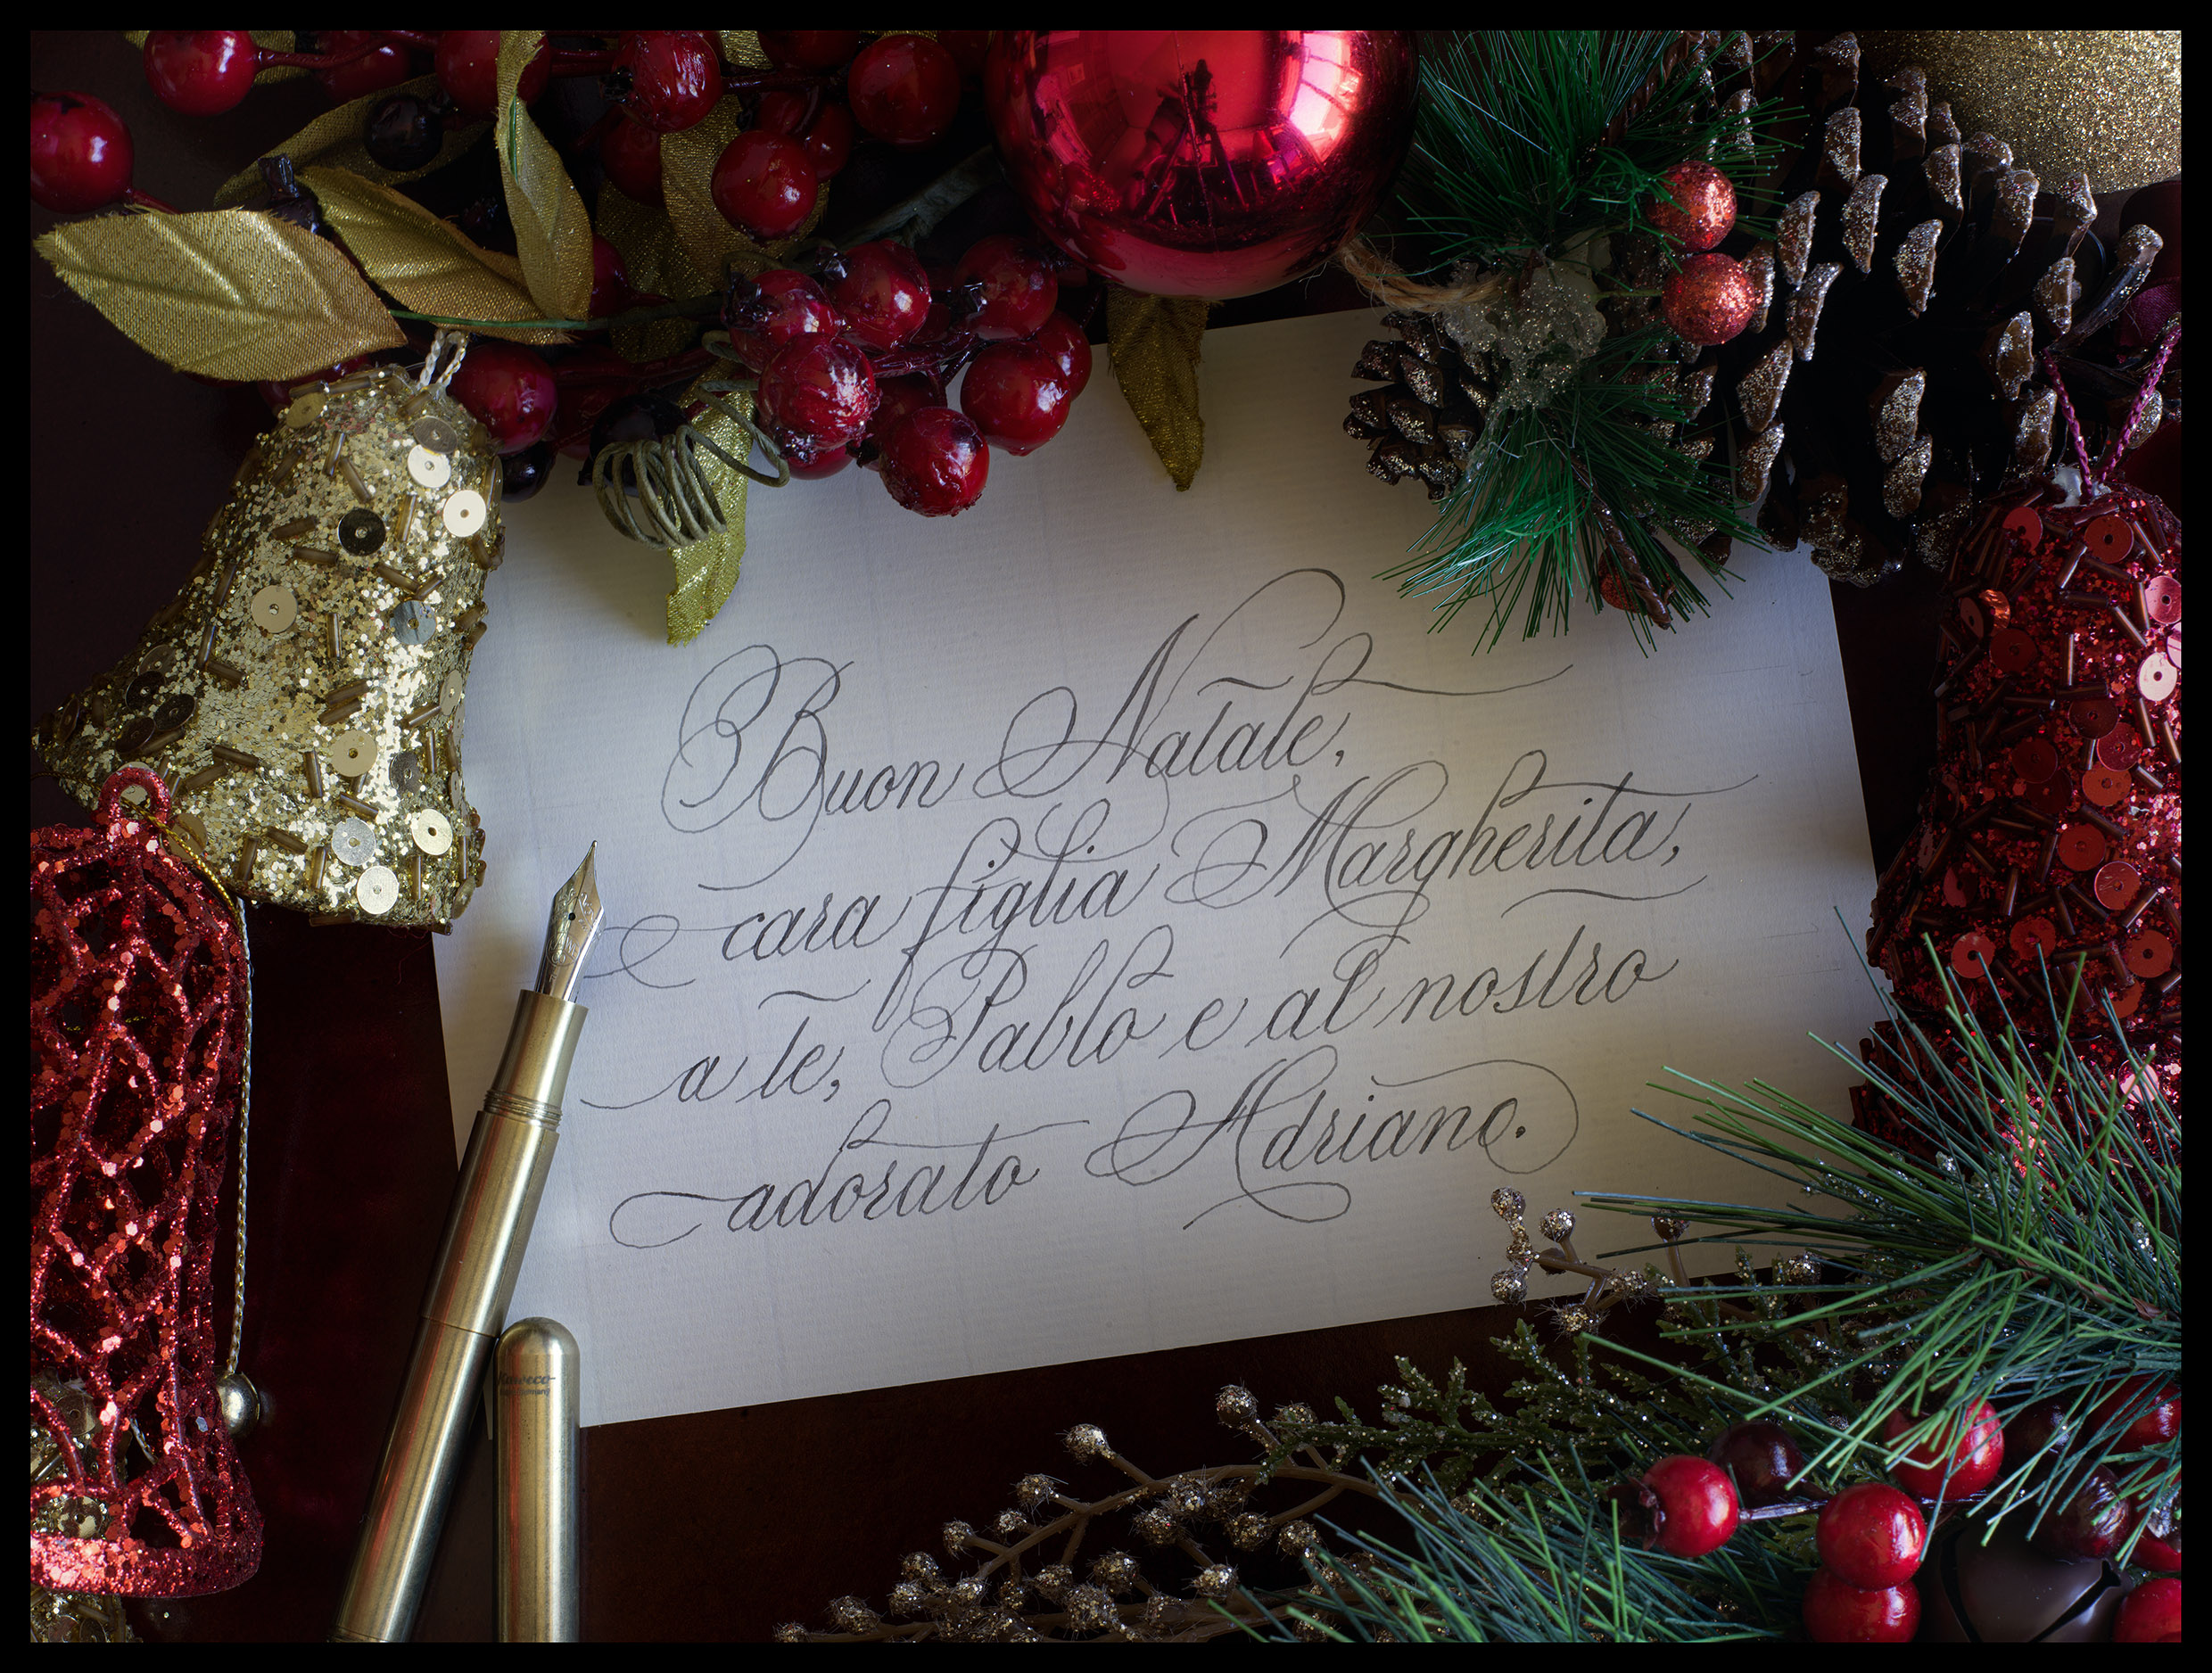 Buon Natale,
cara figlia Margherita,
a te, Pablo e al nostro
adorato Adriano.
Kaweco